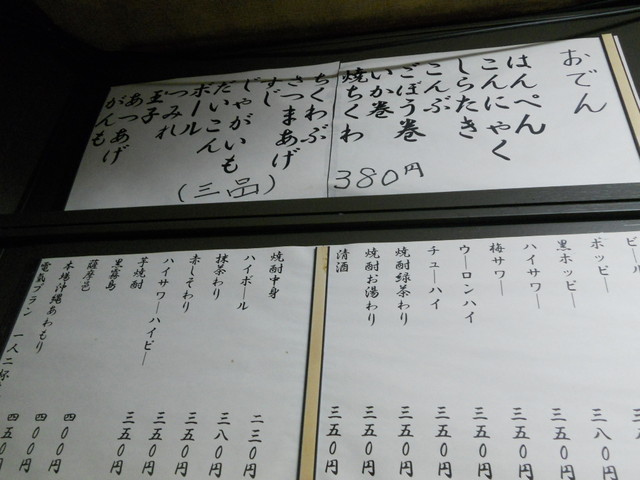 おでん
はんぺん
こんにゃく
しらたき
こんぶ
ごぼう巻
いか巻
焼ちくわ
380円
ちくわぶ
さつまあげ
すじ
じゃがいも
だいこん
ボール
つみれ
玉子
あつあげ
がんも
(三品)
ホッピー 三八〇円
黒ホッピー 三八〇円
ハイサワー 三五〇円
梅サワー 三五〇円
ウーロンハイ 三五〇円
チューハイ 三五〇円
焼酎緑茶わり 三五〇円
焼酎お湯わり 三五〇円
清酒 三五〇円
焼酎中身 二三〇円
ハイボール 三八〇円
抹茶わり 三五〇円
赤しそわり 三五〇円
ハイサワーハイピー 三五〇円
芋焼酎
黒霧島
薩摩邑 四〇〇円
本場沖縄あわもり 四〇〇円
電気ブラン 一人二杯 四五〇円